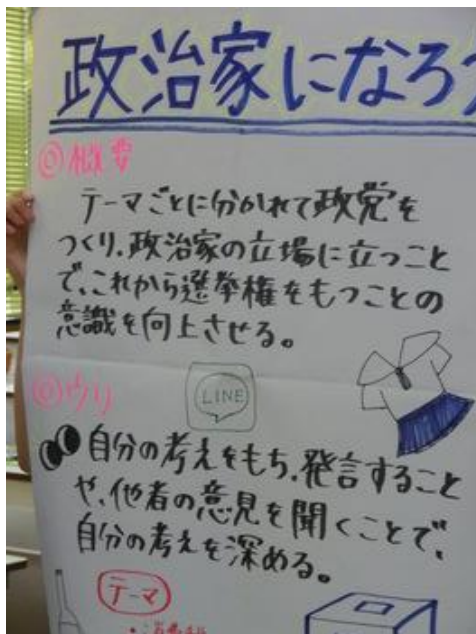 政治家になろう
◎概要
テーマごとに分かれて政党を
つくり、政治家の立場に立つこと
で、これから選挙権をもつことの
意識を向上させる。
LINE
◎ウリ
自分の考えをもち、発言すること
や、他者の意見を聞くことで、
自分の考えを深める。
テーマ